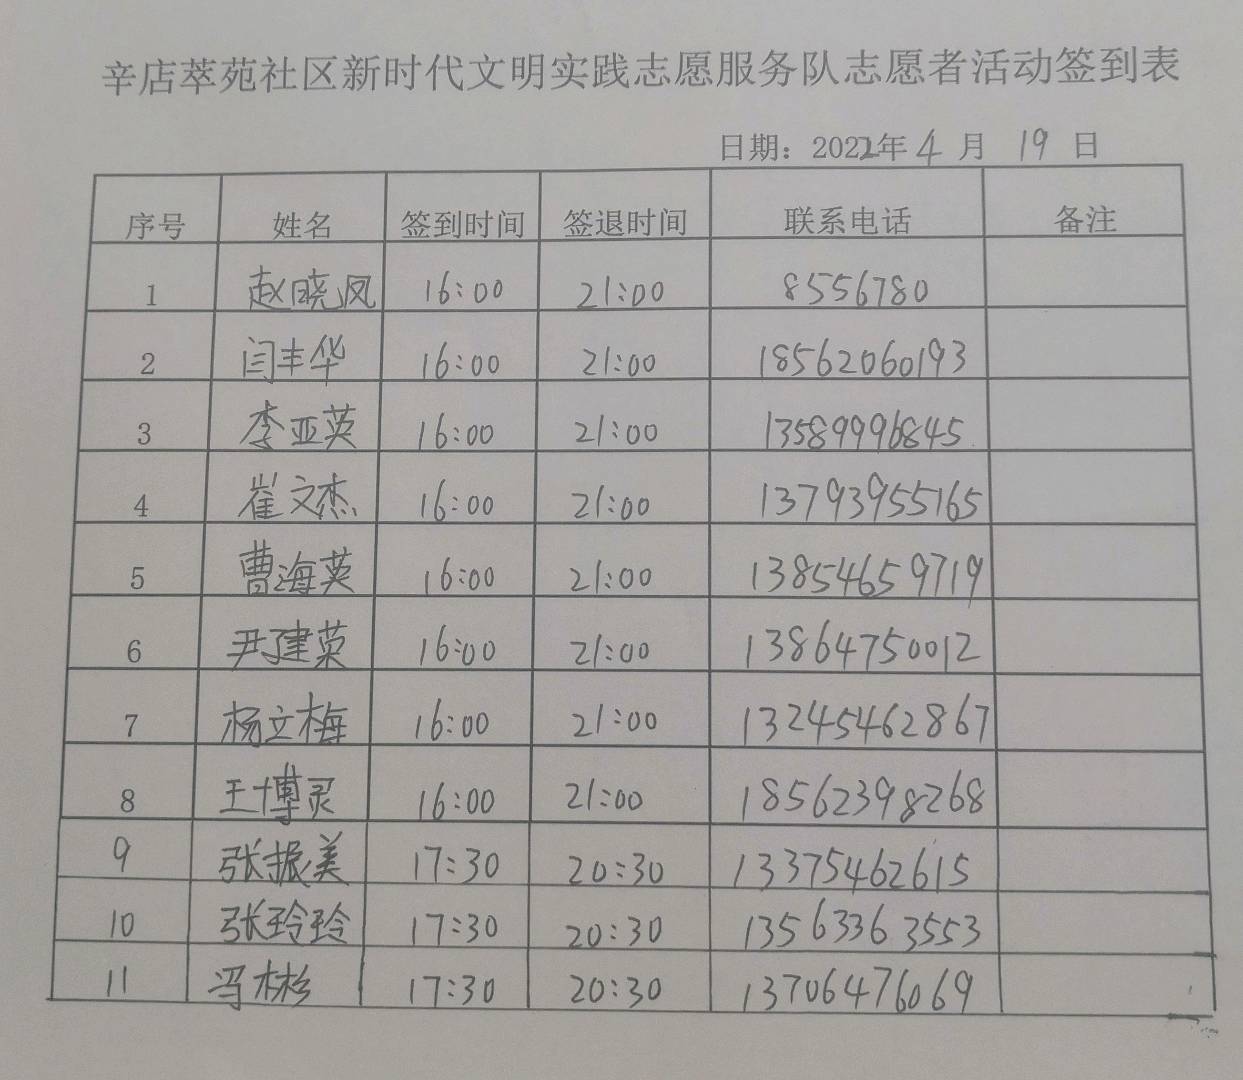 辛店萃苑社区新时代文明实践志愿服务队志愿者活动签到表
日期：2022年 4 月 19 日
序号 姓名 签到时间 签退时间 联系电话 备注
1 赵晓凤 16:00 21:00 8556780
2 闫丰华 16:00 21:00 18562060193
3 李亚英 16:00 21:00 13589996845
4 崔文杰 16:00 21:00 13793955165
5 曹海英 16:00 21:00 13854659719
6 尹建荣 16:00 21:00 13864750012
7 杨立梅 16:00 21:00 13245462867
8 王博灵 16:00 21:00 18562398268
9 张振美 17:30 20:30 13375462615
10 张玲玲 17:30 20:30 13563363553
11 冯彬彬 17:30 20:30 13706476069